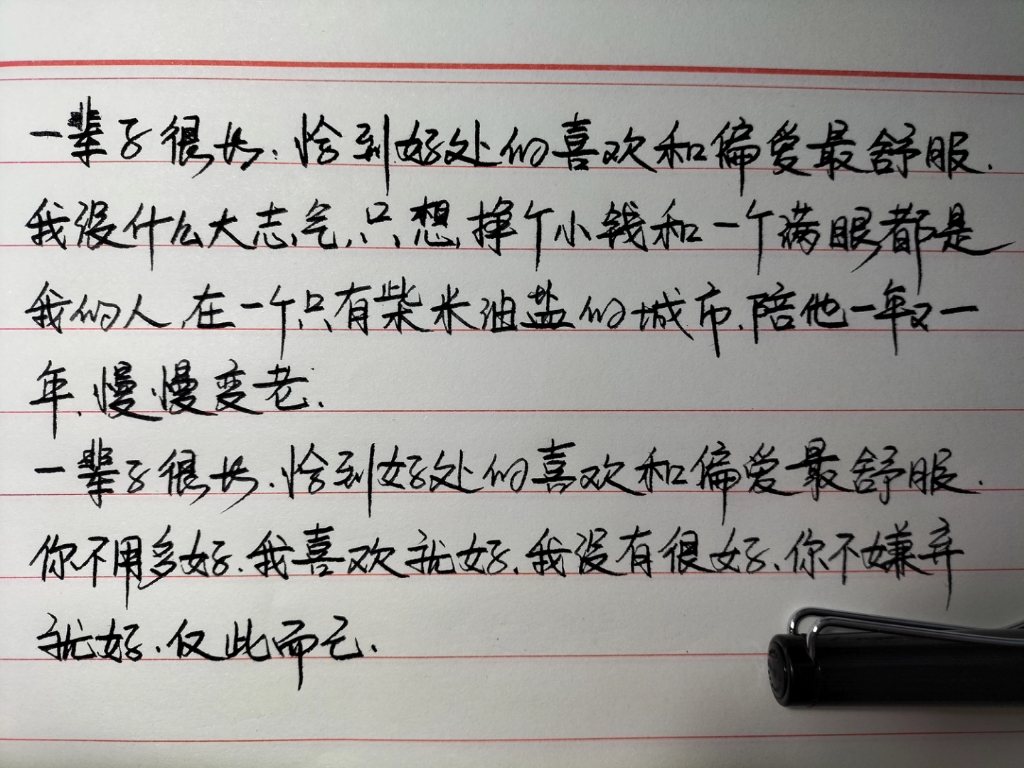 一辈子很长.恰到好处的喜欢和偏爱最舒服.
我没什么大志气,只想,挣个小钱和一个满眼都是
我的人,在一个只有柴米油盐的城市,陪他一年又一
年,慢慢变老.
一辈子很长.恰到好处的喜欢和偏爱最舒服.
你不用多好,我喜欢就好,我没有很好,你不嫌弃
就好.仅此而已.